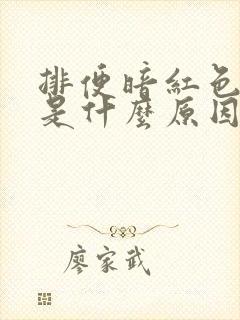 排便暗紅色
是什麼原因
廖家武